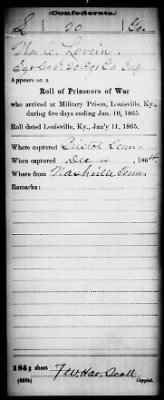 (Confederate.)
L 20 Ga.
Wm C. Lovein
Sgt Co. F. 20 Regt Ga Inf
Appears on a
Roll of Prisoners of War
who arrived at Military Prison, Louisville, Ky.,
during five days ending Jan. 10, 1865.
Roll dated Louisville, Ky., Jan'y 11, 1865.
Where captured Bristol Tenn.
When captured Dec 14, 1864
Where from Nashville Tenn.
Remarks:
sheet
Scott
Copyist.